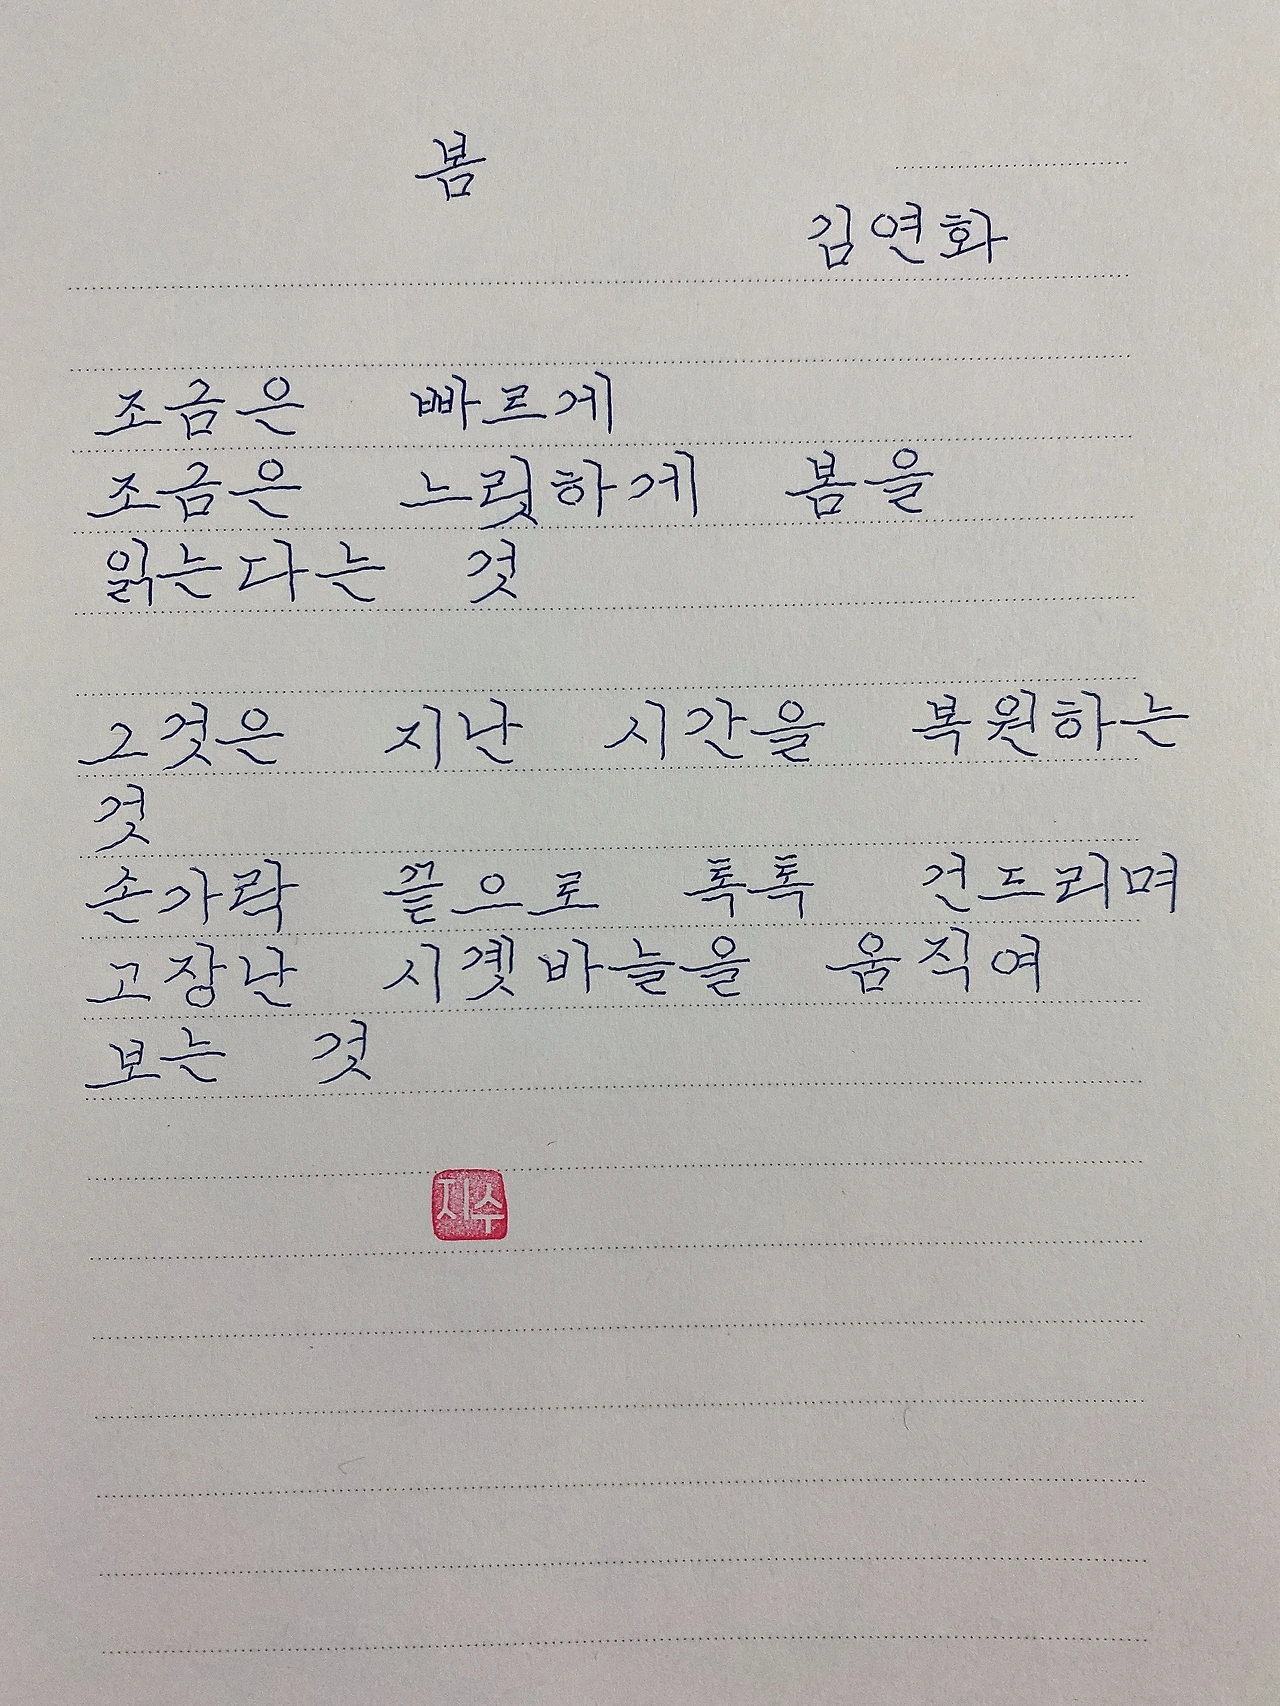 봄
김연화
조금은 빠르게
조금은 느릿하게 봄을
읽는다는 것
그것은 지난 시간을 복원하는
것
손가락 끝으로 톡톡 건드리며
고장난 시곗바늘을 움직여
보는 것
지수